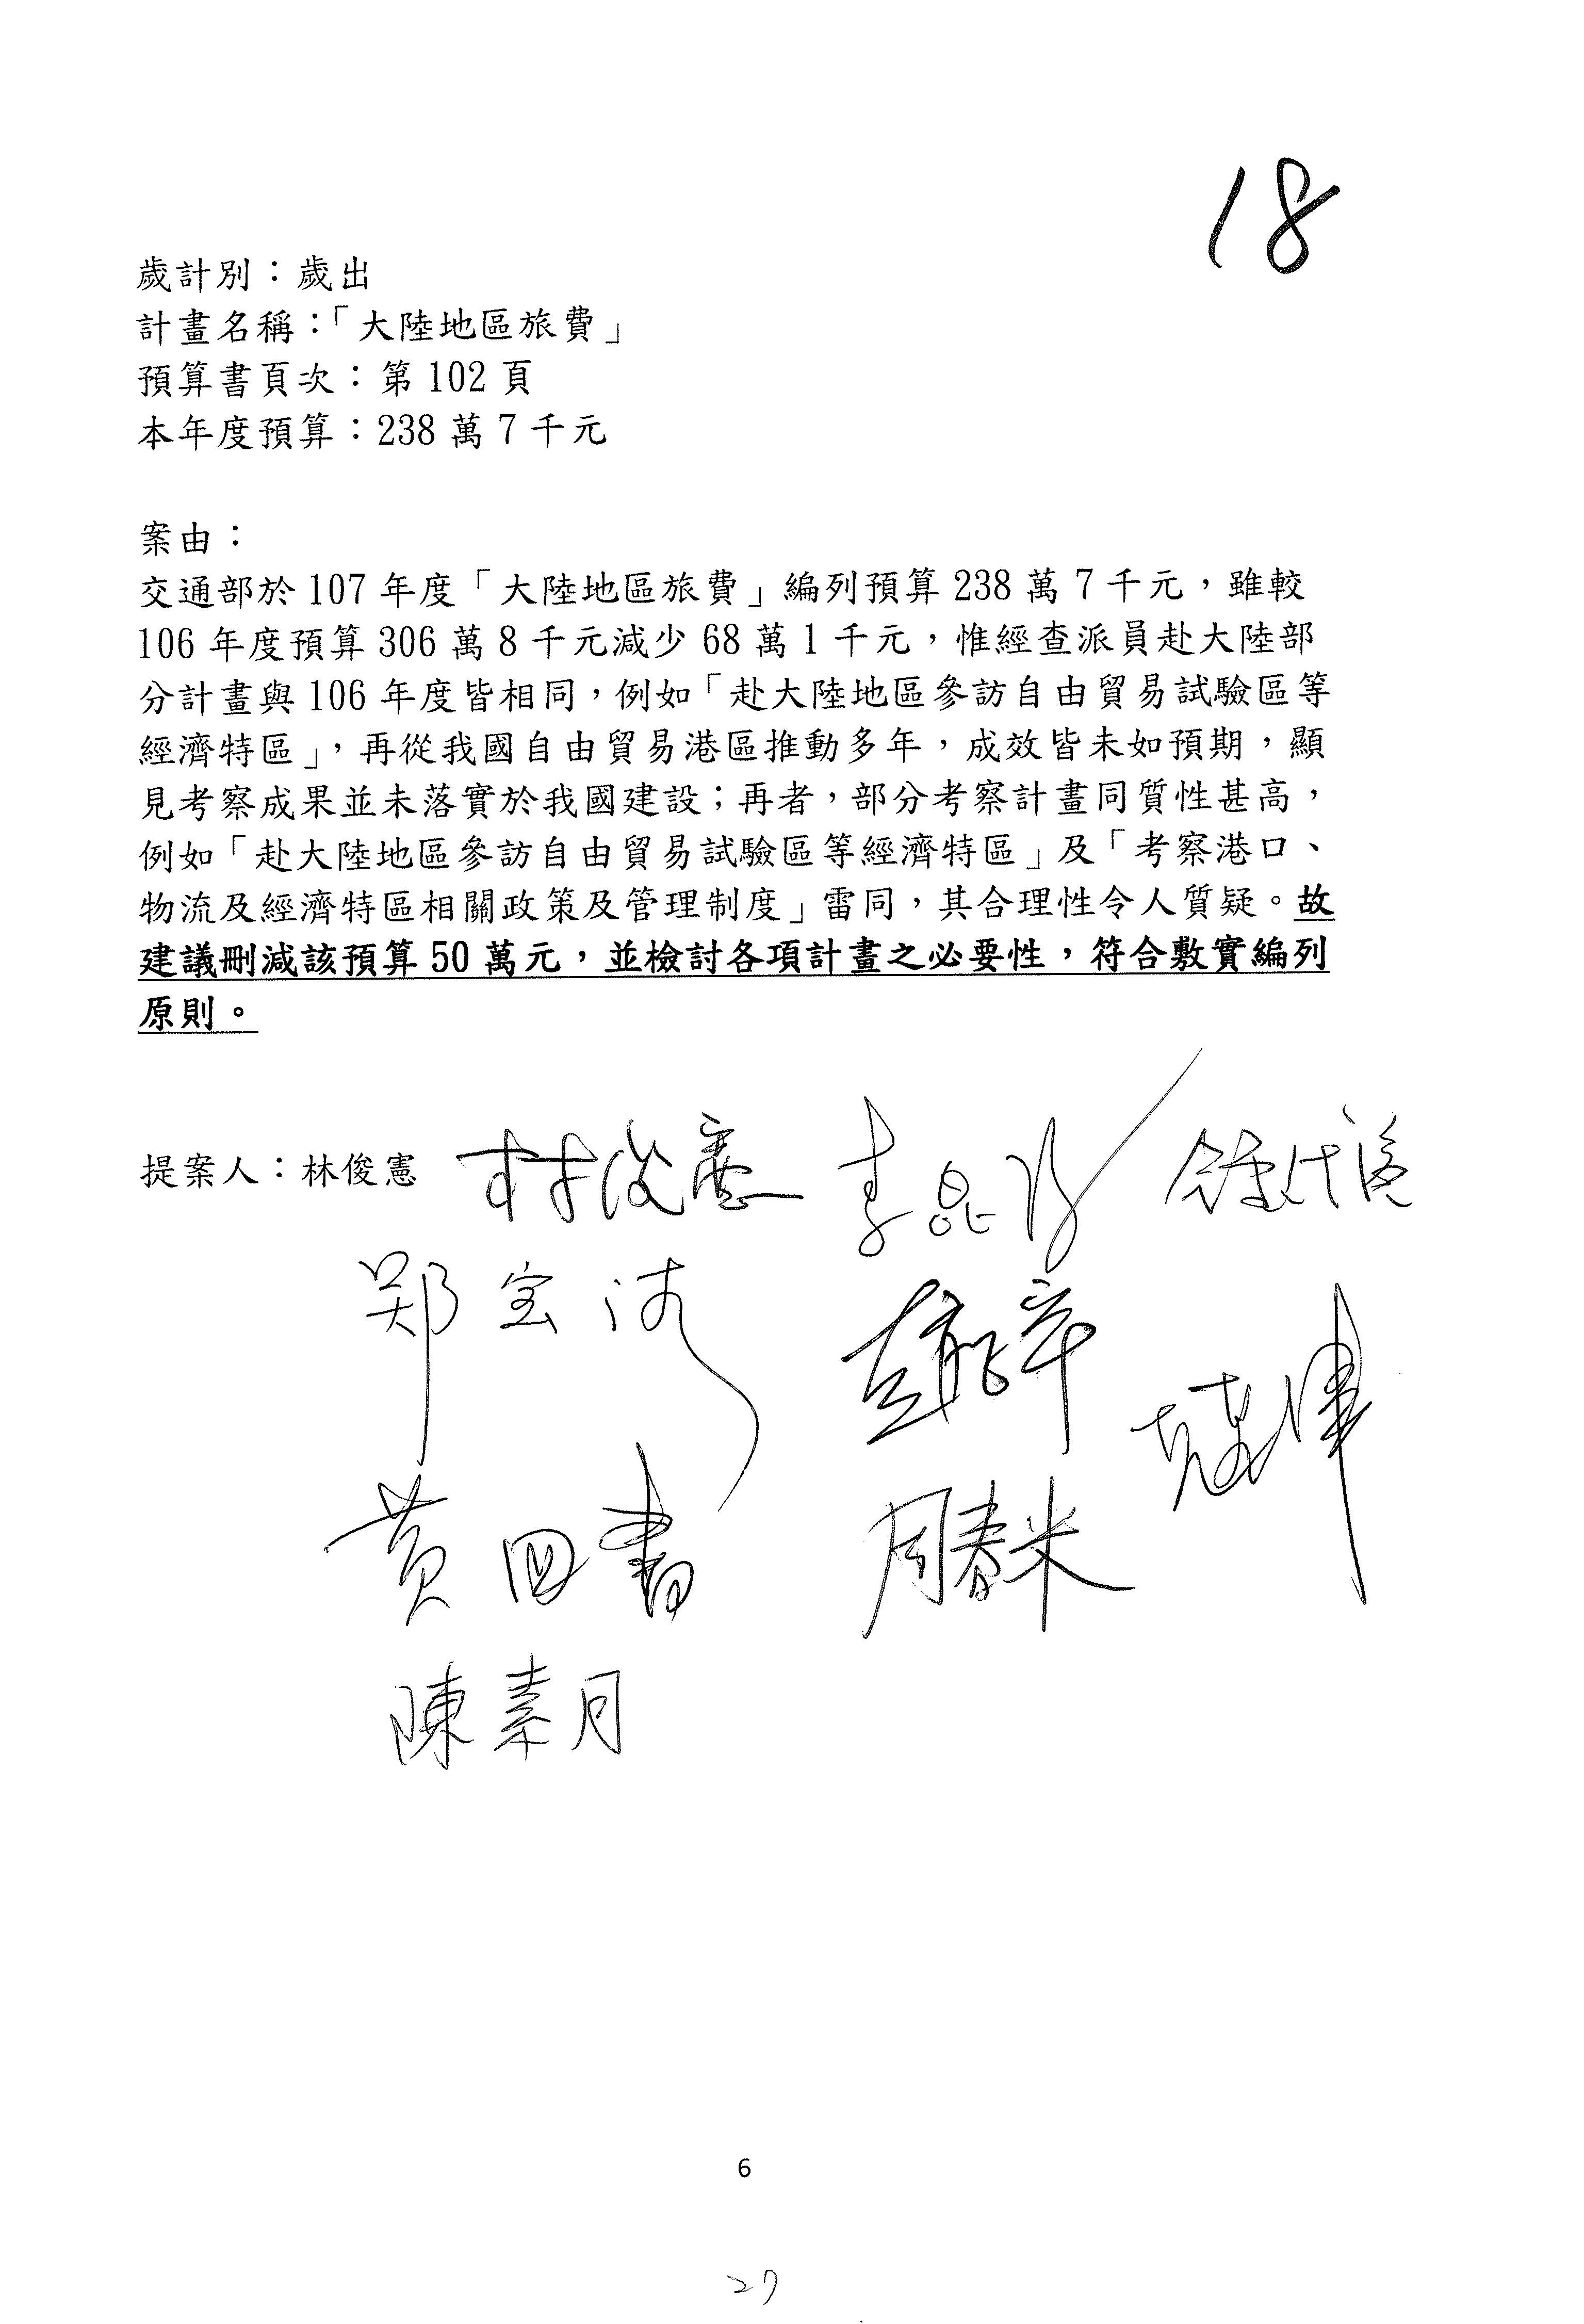 18
歲計別：歲出
計畫名稱：「大陸地區旅費」
預算書頁次：第 102 頁
本年度預算：238 萬 7 千元
案由：
交通部於 107 年度「大陸地區旅費」編列預算 238 萬 7 千元，雖較
106 年度預算 306 萬 8 千元減少 68 萬 1 千元，惟經查派員赴大陸部
分計畫與 106 年度皆相同，例如「赴大陸地區參訪自由貿易試驗區等
經濟特區」，再從我國自由貿易港區推動多年，成效皆未如預期，顯
見考察成果並未落實於我國建設；再者，部分考察計畫同質性甚高，
例如「赴大陸地區參訪自由貿易試驗區等經濟特區」及「考察港口、
物流及經濟特區相關政策及管理制度」雷同，其合理性令人質疑。故
建議刪減該預算 50 萬元，並檢討各項計畫之必要性，符合敷實編列
原則。
提案人：林俊憲 林俊憲 李昆澤
郑宝清
黃国書 周春米
陳素月
6
27